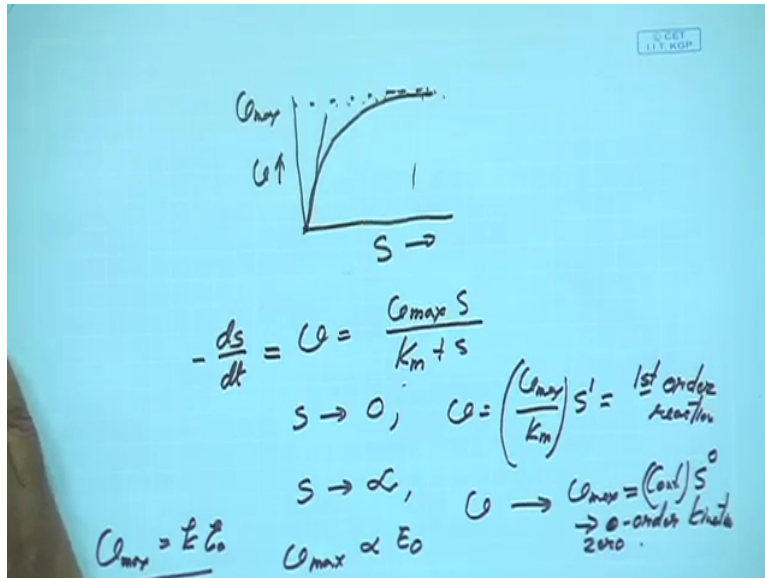 © CET
I.I.T. KGP
υmax
υ↑
S →
- ds/dt = υ = υmax S / Km + s
s → 0, υ = (υmax / Km) S¹ = 1st order reaction
s → ∝, υ → υmax = (Const) S⁰
→ 0-order kinetics
zero.
υmax = k E₀ υmax ∝ E₀